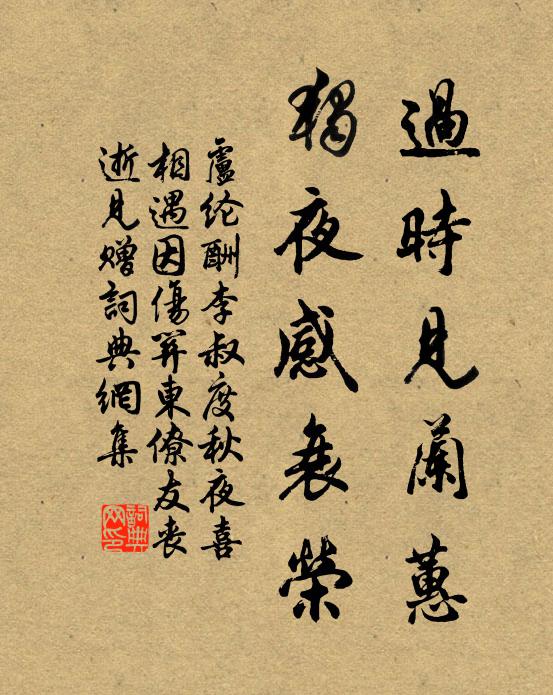 過時見蘭蕙
獨夜感衰榮
盧纶酬李叔度秋夜喜
相遇因傷關東僚友丧
逝見贈詞典網集
詞典網印